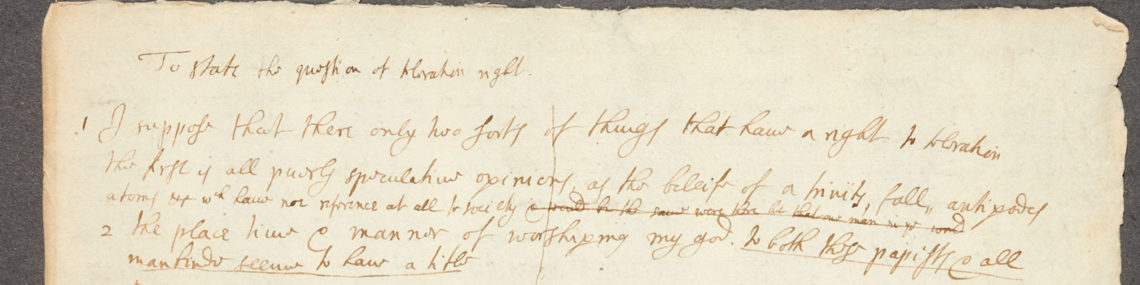 To state the question of toleration right.
1 I suppose that there only two sorts of things that have a right to toleration
the first is all purely speculative opinions as the beleife of a trinity, fall, antipodes
atoms &c wch have noe reference at all to society & would be the same were there but that one man in ye world
2 the place time & manner of worshiping my god. to both these papists & all
mankinde seeme to have a title